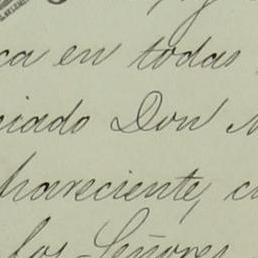 ca en todas
ciado Don
pareciente, c
los Señores